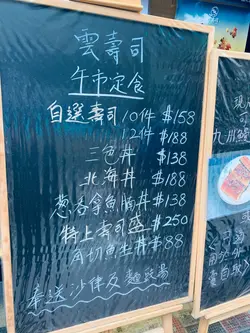 雲壽司
午市定食
自選壽司10件 $158
12件 $188
三色丼 $138
北海丼 $188
葱吞拿魚腩丼 $138
特上壽司盛 $250
角切魚生丼 $188
奉送:沙律及麵豉湯
現
可
九州鰻